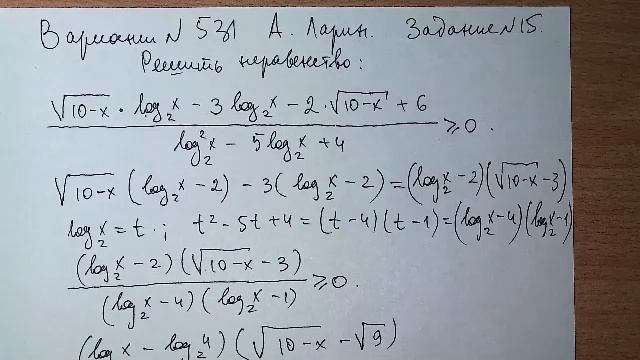 Вариант N 531 А. Ларин. Задание N 15.
Решить неравенство:
(√(10-x) · log₂x - 3 log₂x - 2·√(10-x) + 6) / (log₂²x - 5 log₂x + 4) ≥ 0.
√(10-x) (log₂x - 2) - 3(log₂x - 2) = (log₂x - 2)(√(10-x) - 3)
log₂x = t ; t² - 5t + 4 = (t - 4)(t - 1) = (log₂x - 4)(log₂x - 1)
((log₂x - 2)(√(10-x) - 3)) / ((log₂x - 4)(log₂x - 1)) ≥ 0.
(log₂x - log₂4)(√(10-x) - √9)